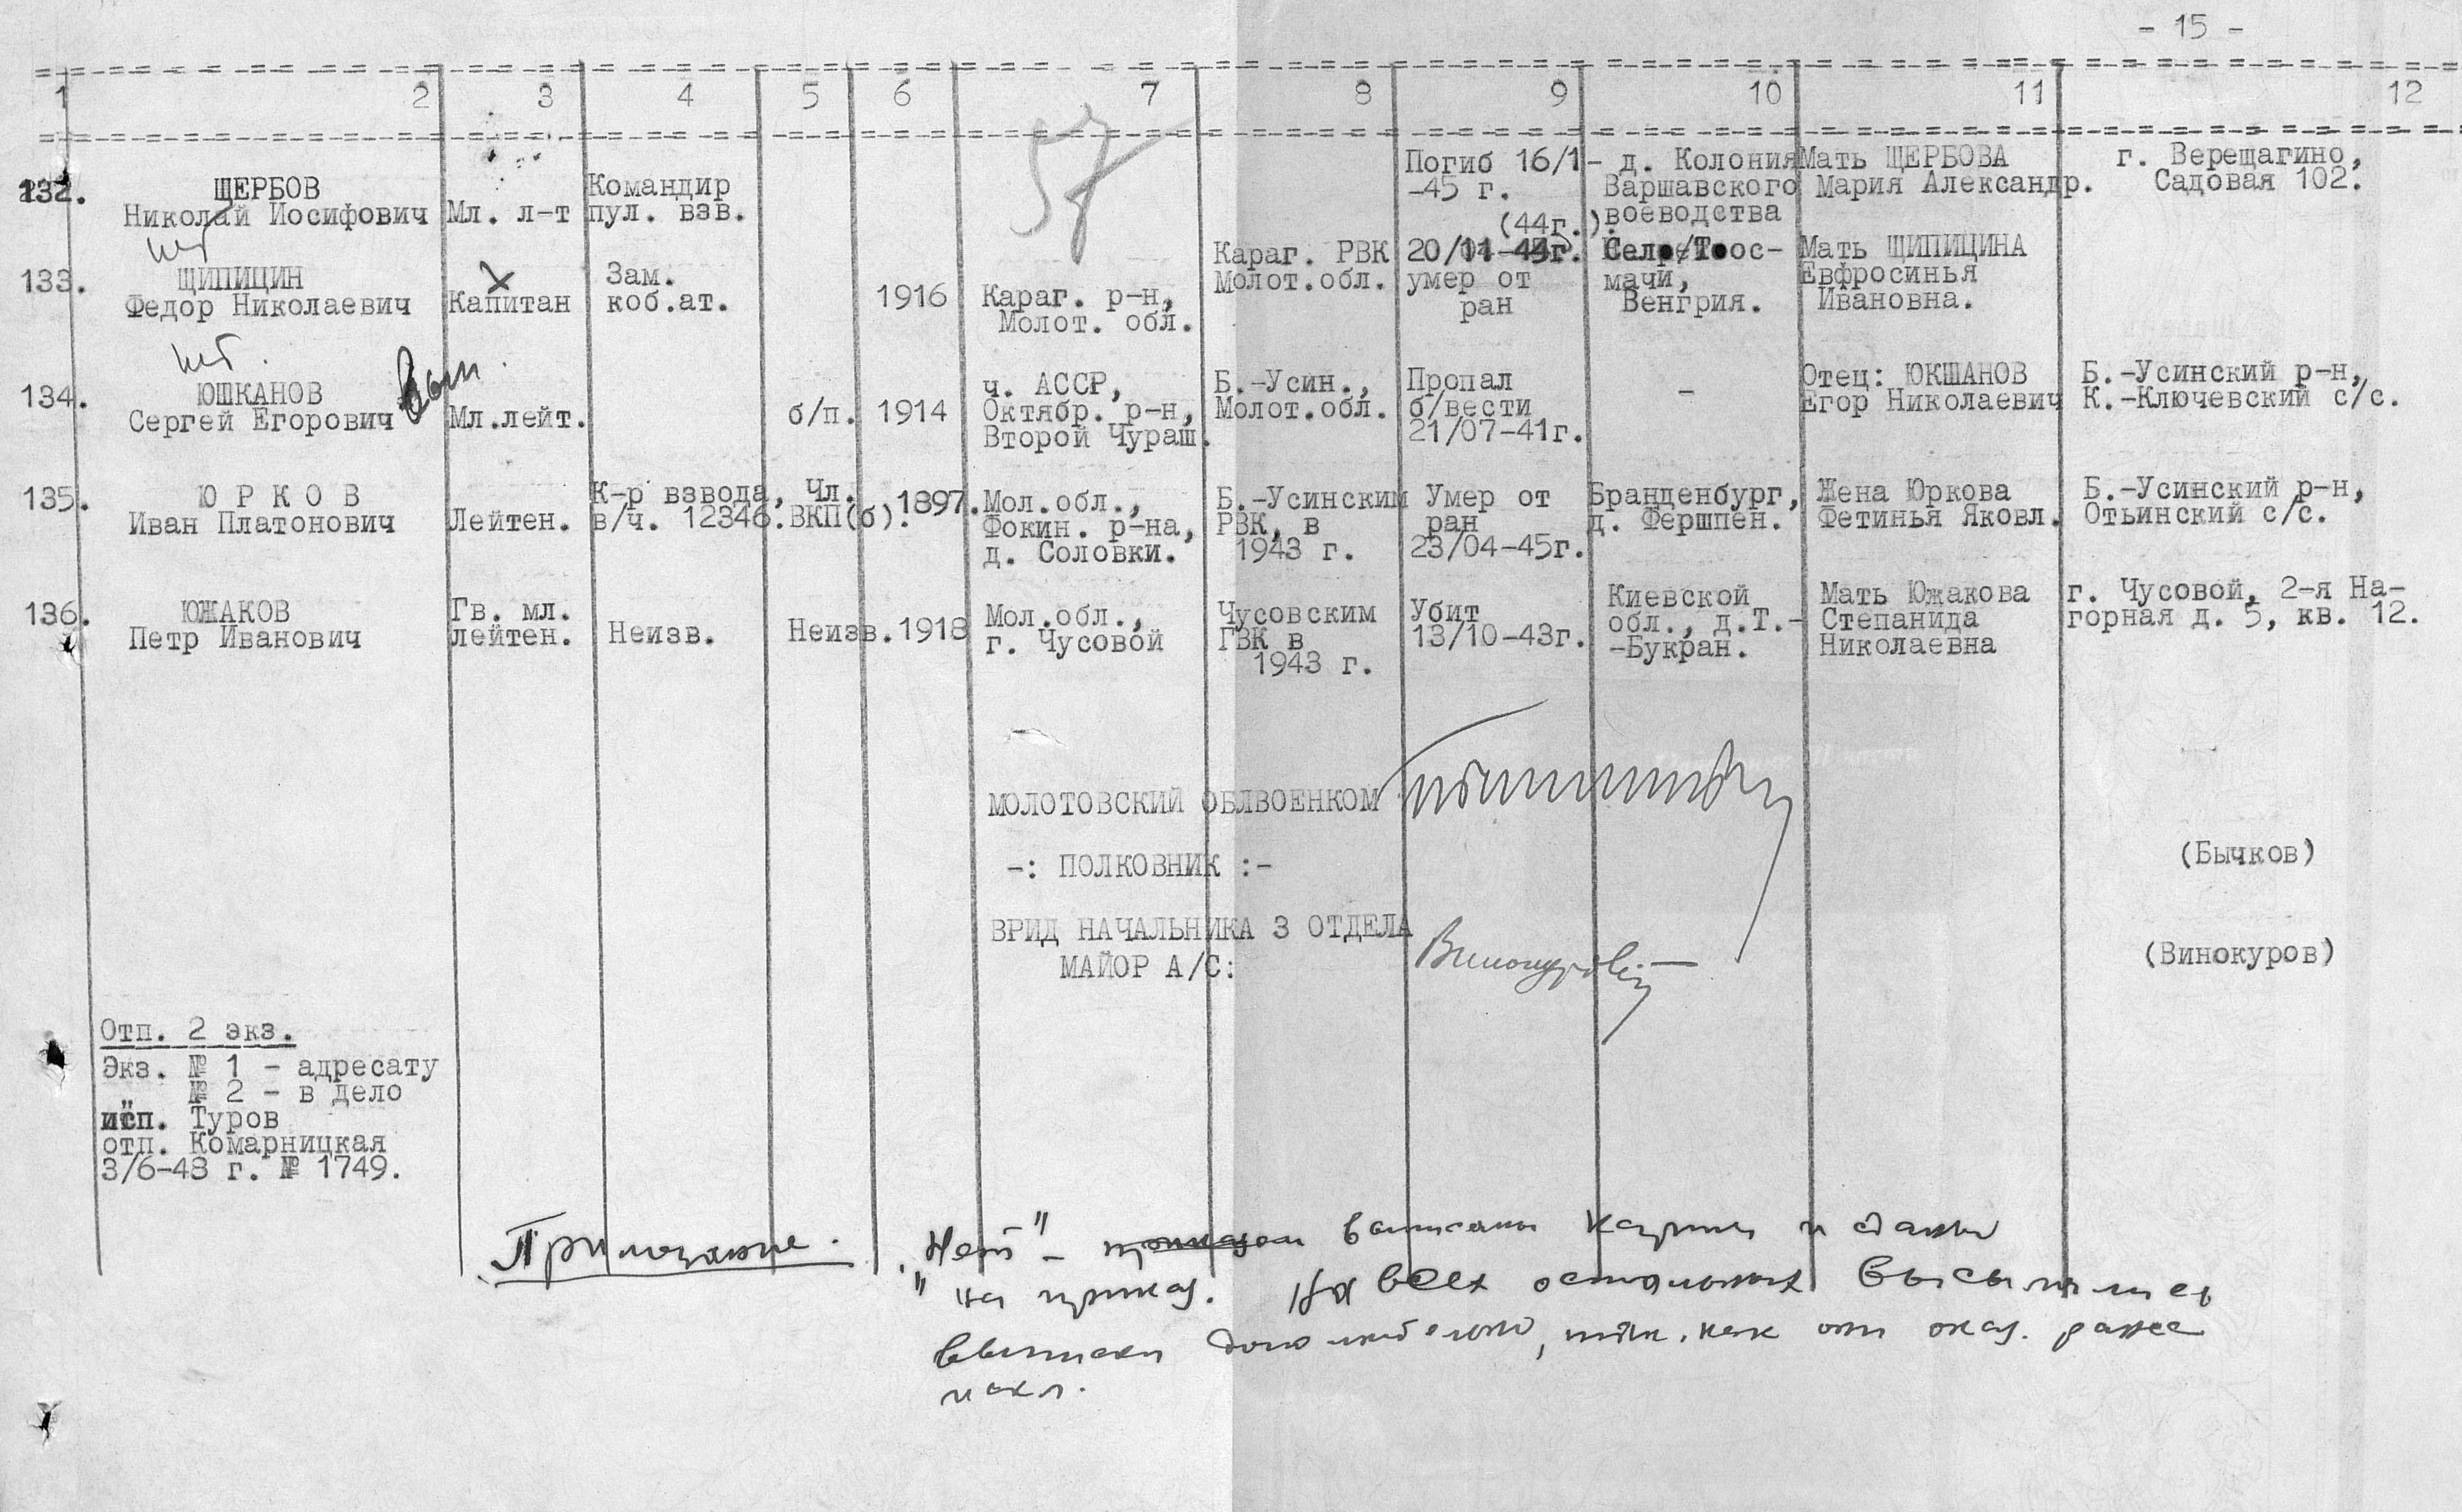 - 15 -
1 2 3 4 5 6 7 8 9 10 11 12
57
132. ЩЕРБОВ
Николай Иосифович
Мл. л-т
Командир
пул. взв.
Погиб 16/1-
-45 г.
д. Колония
Варшавского
воеводства
Мать ЩЕРБОВА
Мария Александр.
г. Верещагино,
Садовая 102.
нет
133. ЩИПИЦИН
Федор Николаевич
Капитан
Зам.
коб.ат.
1916
Караг. р-н,
Молот. обл.
Караг. РВК
Молот.обл.
(44г.).
20/11-45г.
умер от
ран
мачи,
Венгрия.
Мать ЩИПИЦИНА
Евфросинья
Ивановна.
нет.
134. ЮШКАНОВ
Сергей Егорович
Мл.лейт.
б/п. 1914
ч. АССР,
Октябр. р-н,
Второй Чураш.
Б.-Усин.,
Молот.обл.
Пропал
б/вести
21/07-41г.
-
Отец: ЮКШАНОВ
Егор Николаевич
Б.-Усинский р-н,
К.-Ключевский с/с.
135. Ю Р К О В
Иван Платонович
Лейтен.
К-р взвода,
в/ч. 12346.
Чл.
ВКП(б).
1897.
Мол.обл.,
Фокин. р-на,
д. Соловки.
Б.-Усинским
РВК, в
1943 г.
Умер от
ран
23/04-45г.
Бранденбург,
д. Фершпен.
Жена Юркова
Фетинья Яковл.
Б.-Усинский р-н,
Отьинский с/с.
136. ЮЖАКОВ
Петр Иванович
Гв. мл.
лейтен.
Неизв.
Неизв. 1918
Мол.обл.,
г. Чусовой
Чусовским
ГВК в
1943 г.
Убит
13/10-43г.
Киевской
обл., д.Т.-
-Букран.
Мать Южакова
Степанида
Николаевна
г. Чусовой, 2-я На-
горная д. 5, кв. 12.
МОЛОТОВСКИЙ ОБЛВОЕНКОМ
-: ПОЛКОВНИК :-
(Бычков)
ВРИД НАЧАЛЬНИКА 3 ОТДЕЛА
МАЙОР А/С:
Винокуров
(Винокуров)
Отп. 2 экз.
Экз. № 1 - адресату
№ 2 - в дело
исп. Туров
отп. Комарницкая
3/6-48 г. № 1749.
Примечание. "Нет" - выписаны карточки и сданы
на приказ. На всех остальных высылались
выписки дополнительно, так как они оказ. ранее
искл.